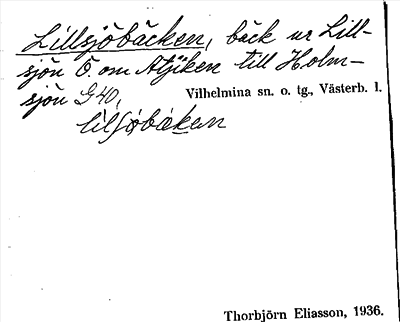 Lillsjöbäcken, bäck ur Lill-
sjön Ö. om Atjiken till Holm-
sjön G40, Vilhelmina sn. o. tg., Västerb. l.
lilsjöbäkən
Thorbjörn Eliasson, 1936.